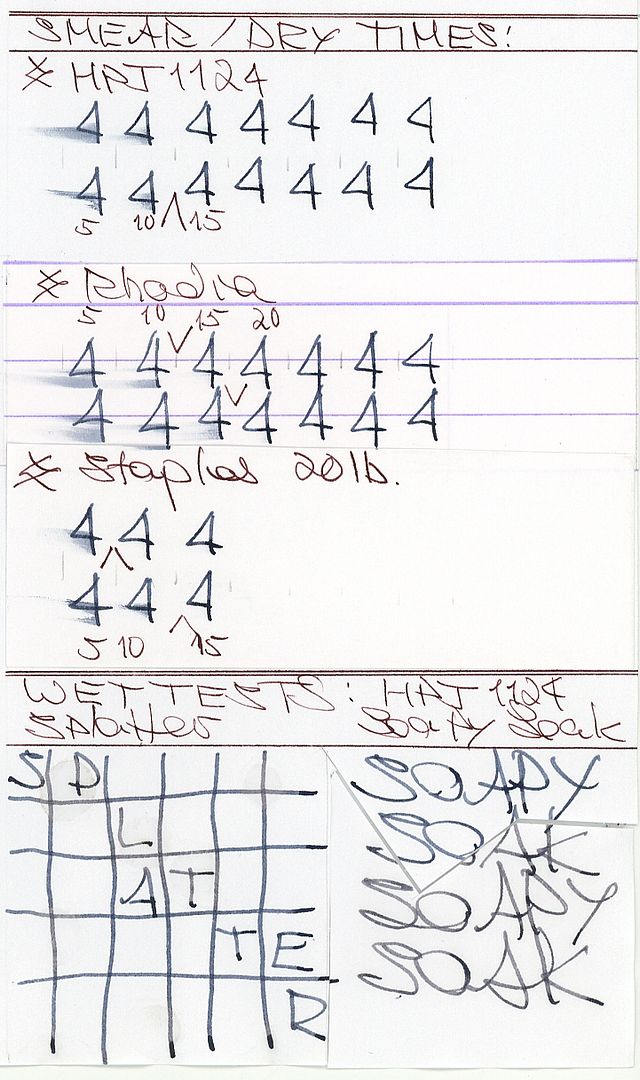 SMEAR / DRY TIMES:
* HPJ1124
4 4 4 4 4 4 4
4 4 4 4 4 4 4
5 10 15
* Rhodia
5 10 15 20
4 4 4 4 4 4 4
4 4 4 4 4 4 4
* Staples 20lb.
4 4 4
4 4 4
5 10 15
WET TESTS: HPJ 1124
Splatter Soapy Soak
SP
L
AT
TE
R
SOAPY
SOAK
SOAPY
SOAK